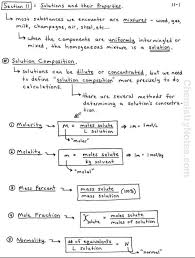 Section 11: Solutions and their Properties. 11-1
→ most substances we encounter are mixtures - wood, gas, milk, champagne, air, steel, etc...
→ when the components are uniformly intermingled or mixed, the homogeneous mixture is a solution.
Solution Composition.
→ solutions can be dilute or concentrated, but we need to define "solution composition" more precisely to do calculations!
→ there are several methods for determining a solution's concentration
① Molarity
M = moles solute / L solution
"molar"
② Molality
m = moles solute / kg solvent
"molal"
③ Mass Percent
mass solute / mass solution (100%)
④ Mole Fraction
X solute = moles solute / moles of solution
⑤ Normality
# of equivalents / L solution = N
"normal"